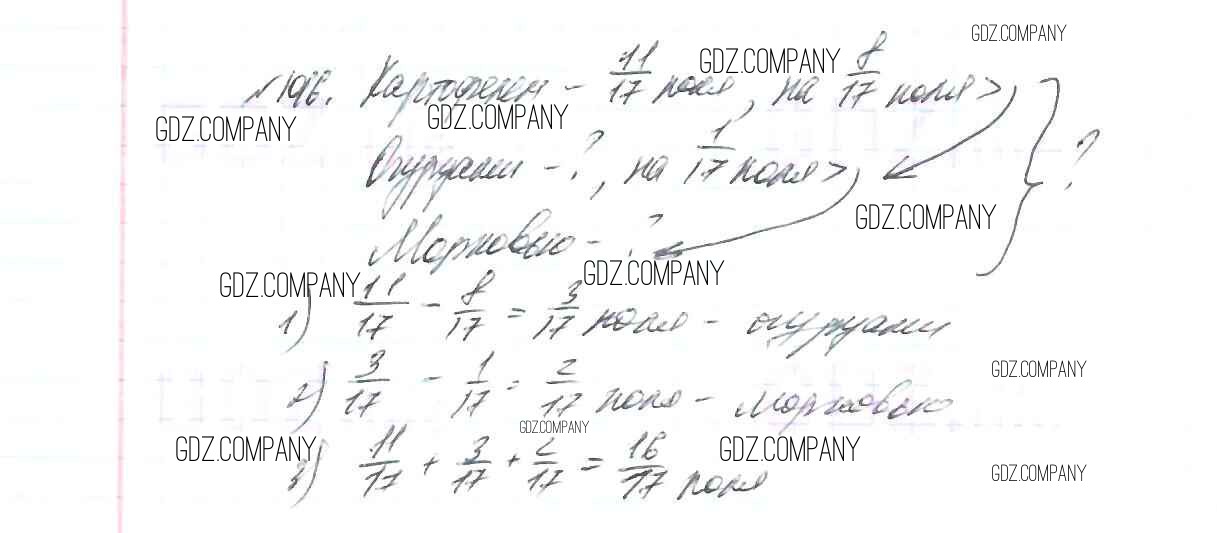 GDZ.COMPANY
№ 196. Картофелем - 11/17 поля, на 8/17 поля >
GDZ.COMPANY GDZ.COMPANY GDZ.COMPANY
Огурцами - ?, на 1/17 поля > ?
GDZ.COMPANY
Морковью - ?
GDZ.COMPANY GDZ.COMPANY
1) 11/17 - 8/17 = 3/17 поля - огурцами
GDZ.COMPANY
2) 3/17 - 1/17 = 2/17 поля - морковью
GDZ.COMPANY GDZ.COMPANY GDZ.COMPANY
3) 11/17 + 3/17 + 2/17 = 16/17 поля
GDZ.COMPANY